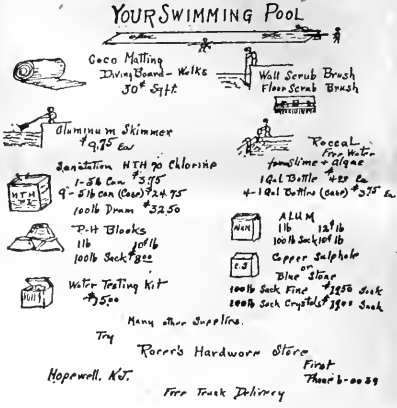 YOUR SWIMMING POOL
Coco Matting
Diving Board - Walks
30¢ Sq ft.
Wall Scrub Brush
Floor Scrub Brush
Aluminum Skimmer
$9.75 Ea
Roccal
Free Water
from Slime + algae
1 Gal Bottle
4-1 Gal Bottles (Case) $3.75 Ea
Sanitation HTH 70 Chlorine
1-5 lb Can $3.75
9-5 lb Can (Case) $24.75
100 lb Drum $32.50
HTH
P-H Blocks
1 lb 10¢ lb
100 lb Sack $8.00
ALUM
1 lb 12¢ lb
100 lb Sack 10¢ lb
C.S
Copper Sulphate
or
Blue Stone
100 lb Sack Fine $12.50 Sack
200 lb Sack Crystals Sack
Water Testing Kit
$15.00
Many other Supplies.
Try
Rorer's Hardware Store
First
Hopewell, N.J.
Phone 6-0039
Free Truck Delivery